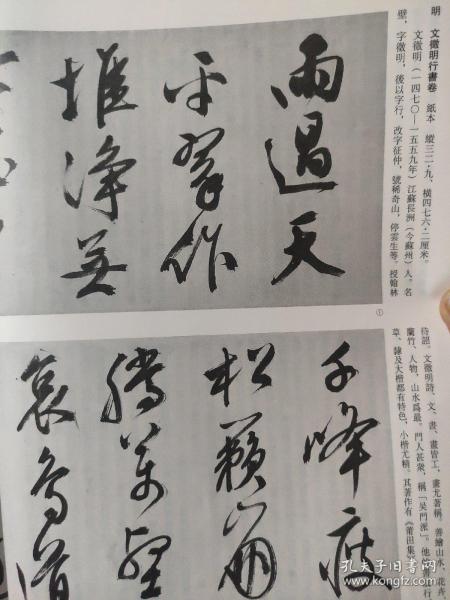 明 文徵明行書卷 紙本 縱三二·九、橫四七六·二厘米。
文徵明（一四七〇—一五五九年）江蘇長洲（今蘇州）人。名
壁，字徵明，後以字行，改字征仲，號稀奇山，停雲生等。授翰林
雨過天
平翠作
堆淨無
①
待詔。文徵明詩、文、書、畫皆工，畫尤著稱。善繪山水、花卉、
蘭竹、人物，山水爲最。門人甚衆，稱「吳門派」。他的行
草、隸及大楷都有特色，小楷尤精。其著作有《莆田集》
千峰瘦
松籟崩
騰萬壑
哀鳥道
孔夫子旧书网
kongfz.com